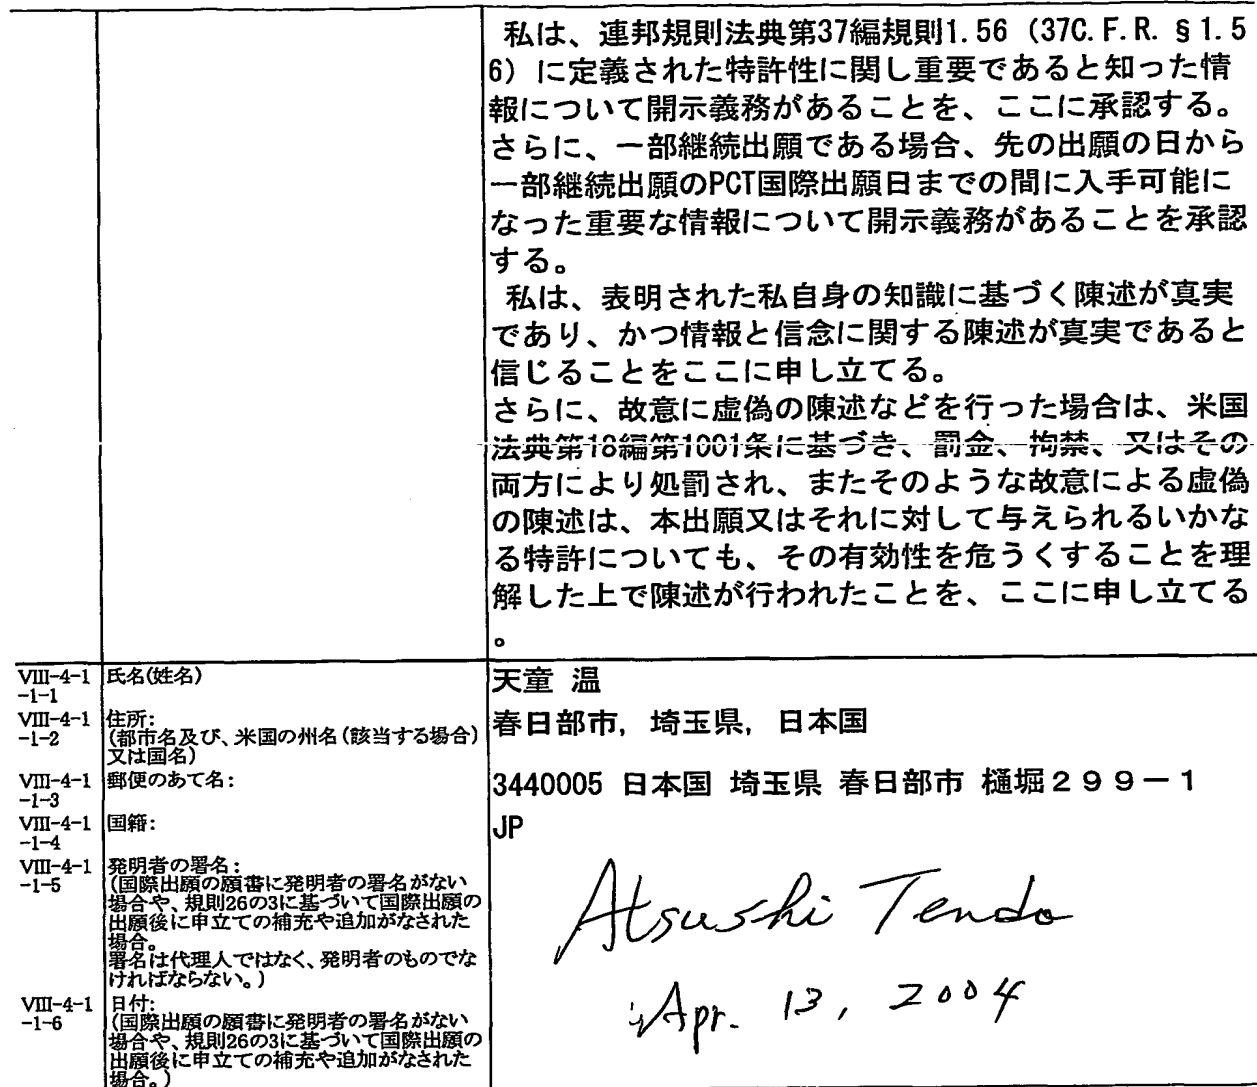 私は、連邦規則法典第37編規則1.56（37C.F.R.§1.5
6）に定義された特許性に関し重要であると知った情
報について開示義務があることを、ここに承認する。
さらに、一部継続出願である場合、先の出願の日から
一部継続出願のPCT国際出願日までの間に入手可能に
なった重要な情報について開示義務があることを承認
する。
私は、表明された私自身の知識に基づく陳述が真実
であり、かつ情報と信念に関する陳述が真実であると
信じることをここに申し立てる。
さらに、故意に虚偽の陳述などを行った場合は、米国
法典第18編第1001条に基づき、罰金、拘禁、又はその
両方により処罰され、またそのような故意による虚偽
の陳述は、本出願又はそれに対して与えられるいかな
る特許についても、その有効性を危うくすることを理
解した上で陳述が行われたことを、ここに申し立てる
。
VIII-4-1 氏名(姓名) 天童 温
-1-1
VIII-4-1 住所: 春日部市, 埼玉県, 日本国
-1-2 (都市名及び、米国の州名(該当する場合)
又は国名)
VIII-4-1 郵便のあて名: 3440005 日本国 埼玉県 春日部市 樋堀２９９－１
-1-3
VIII-4-1 国籍: JP
-1-4
VIII-4-1 発明者の署名:
-1-5 (国際出願の願書に発明者の署名がない
場合や、規則26の3に基づいて国際出願の
出願後に申立ての補充や追加がなされた
場合。
署名は代理人ではなく、発明者のものでな
ければならない。)
Atsushi Tendo
VIII-4-1 日付:
-1-6 (国際出願の願書に発明者の署名がない
場合や、規則26の3に基づいて国際出願の
出願後に申立ての補充や追加がなされた
場合。)
Apr. 13, 2004